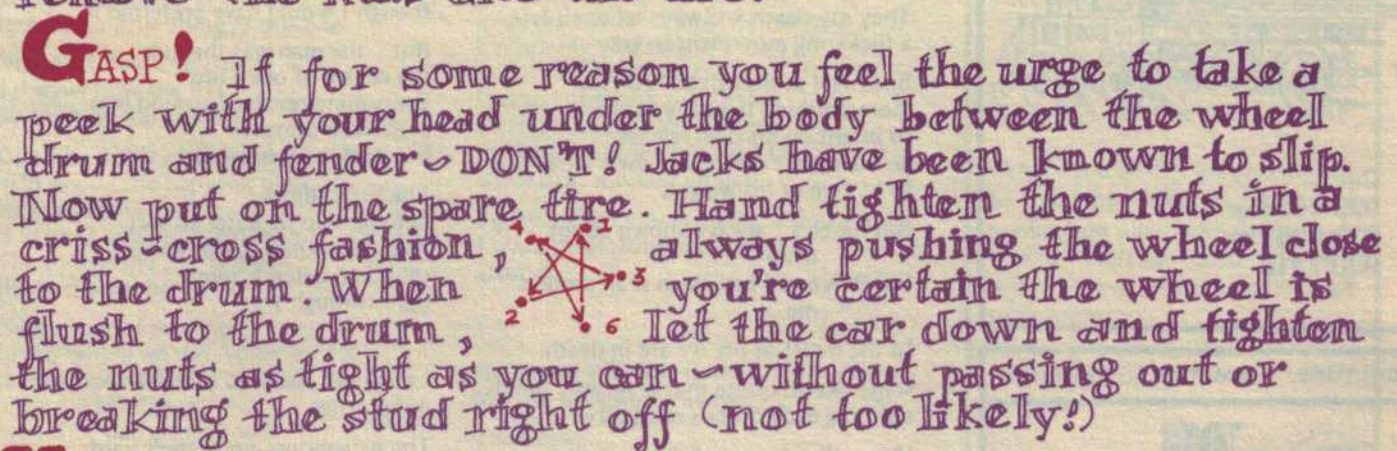 remove the nuts and the tire.
GASP! If for some reason you feel the urge to take a
peek with your head under the body between the wheel
drum and fender ~ DON'T! Jacks have been known to slip.
Now put on the spare tire. Hand tighten the nuts in a
criss-cross fashion, 4 1 always pushing the wheel close
to the drum. When 2 3 you're certain the wheel is
flush to the drum, 6 let the car down and tighten
the nuts as tight as you can ~ without passing out or
breaking the stud right off (not too likely!)